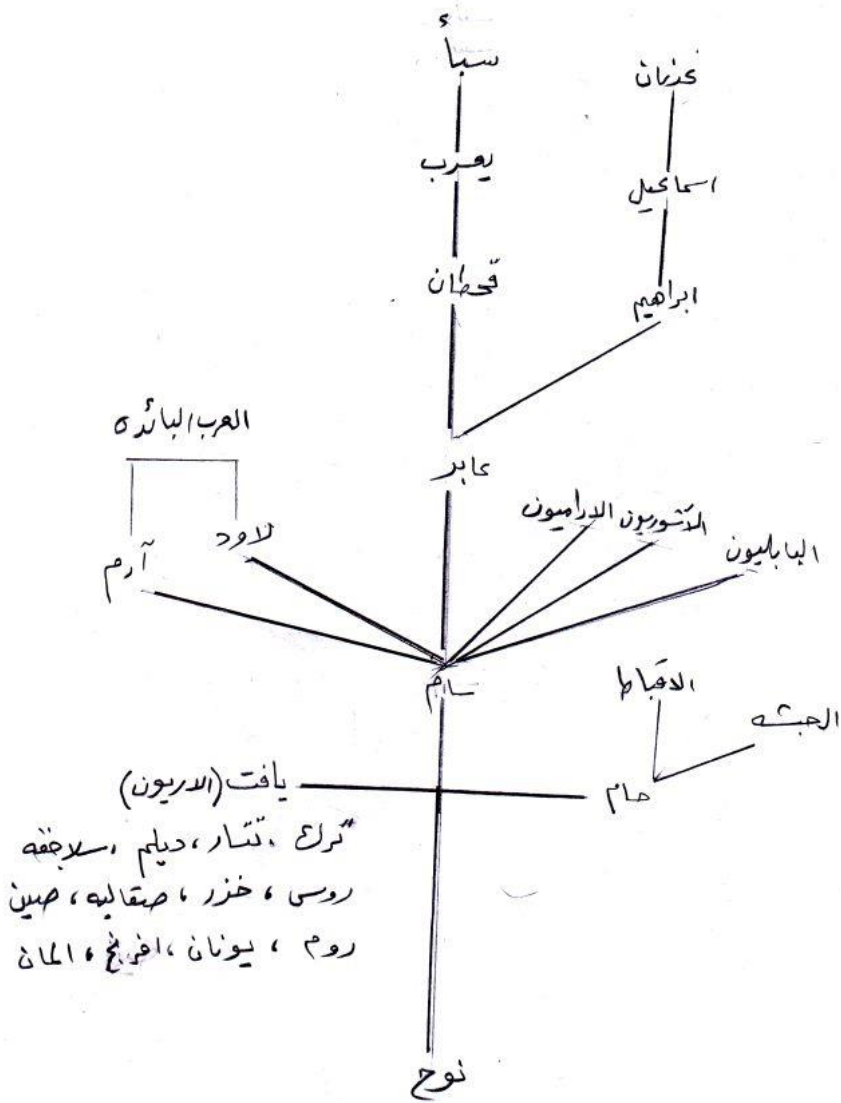 سبأ
عدنان
يعرب
اسماعيل
قحطان
ابراهيم
العرب البائده
عابر
الاراميون
الآشوريون
البابليون
لاود
آرم
سام
الاقباط
الحبشه
يافت (الاريون)
حام
ترك ، تتار ، ديلم ، سلاجقه
روسی ، خزر ، صقالبه ، صين
روم ، يونان ، افرنج ، المان
نوح